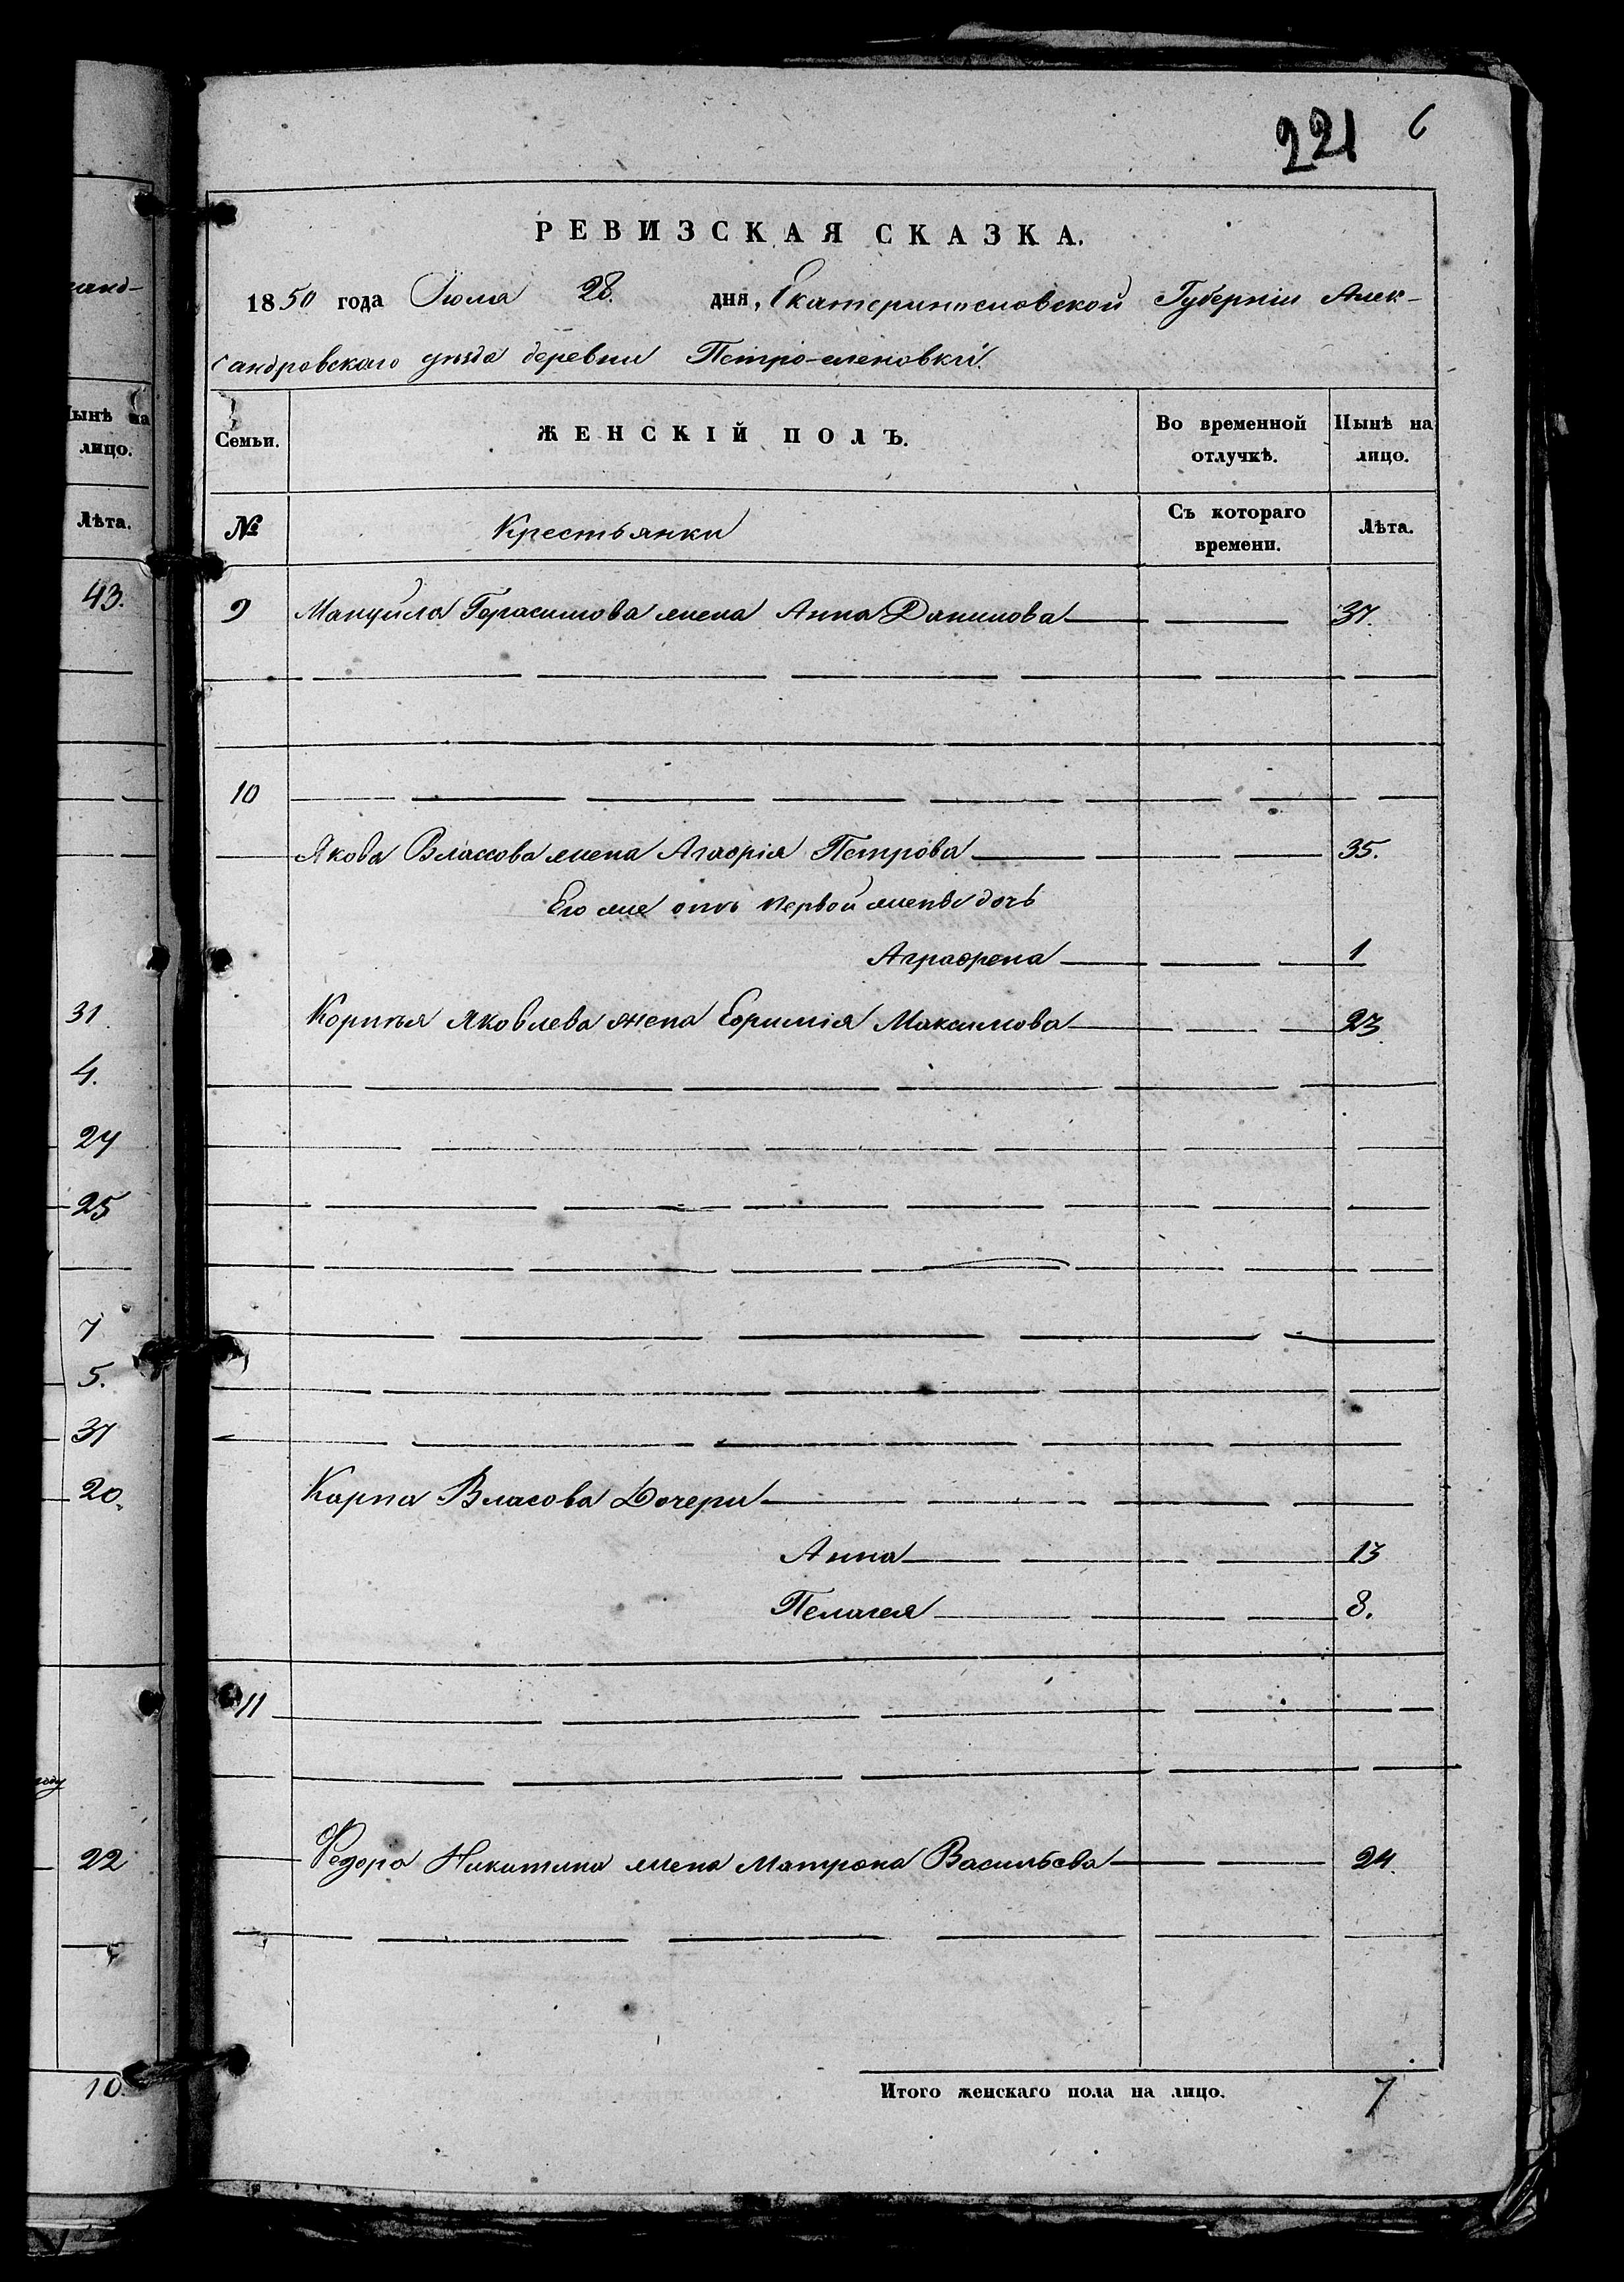 221 6
РЕВИЗСКАЯ СКАЗКА.
1850 года Июля 28. дня, Екатеринославской Губерніи Алек-
сандровскаго уѣзда деревни Петро-еленовки.
Семьи.
ЖЕНСКІЙ ПОЛЪ.
Во временной отлучкѣ.
Нынѣ на лицо.
№
Крестьянки
Съ котораго времени.
Лѣта.
9 Мануйла Герасимова жена Анна Данилова 37.
10
Якова Власова жена Агафія Петрова 35.
Его же отъ первой жены дочь
Аграфена 1
Корнѣя Яковлева жена Ефимія Максимова 23.
Карпа Власова Дочери
Анна 13
Пелагея 8.
11
Федора Никитина жена Матрона Васильева 24.
Итого женскаго пола на лицо. 7
санд-
Нынѣ на
лицо.
Лѣта.
43.
31.
4.
24
25
7
5.
37
20.
году
22
10.